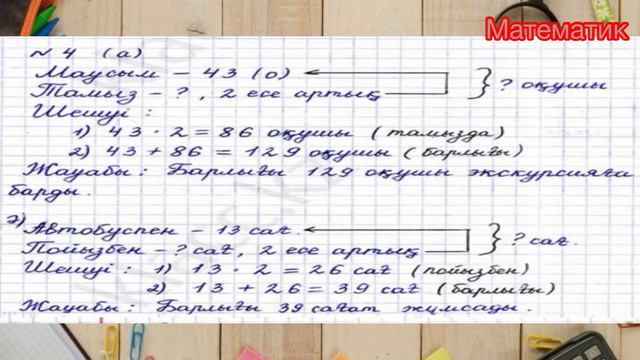 Математик
№ 4 (а)
Маусым – 43 (о)
Тамыз – ? , 2 есе артық } ? оқушы
Шешуі :
1) 43 · 2 = 86 оқушы ( тамызда)
2) 43 + 86 = 129 оқушы ( барлығы)
Жауабы : Барлығы 129 оқушы экскурсияға
барды .
ә) Автобуспен – 13 сағ .
Пойызбен – ? сағ , 2 есе артық } ? сағ .
Шешуі : 1) 13 · 2 = 26 сағ (пойызбен)
2) 13 + 26 = 39 сағ ( барлығы)
Жауабы : Барлығы 39 сағат жұмсады .